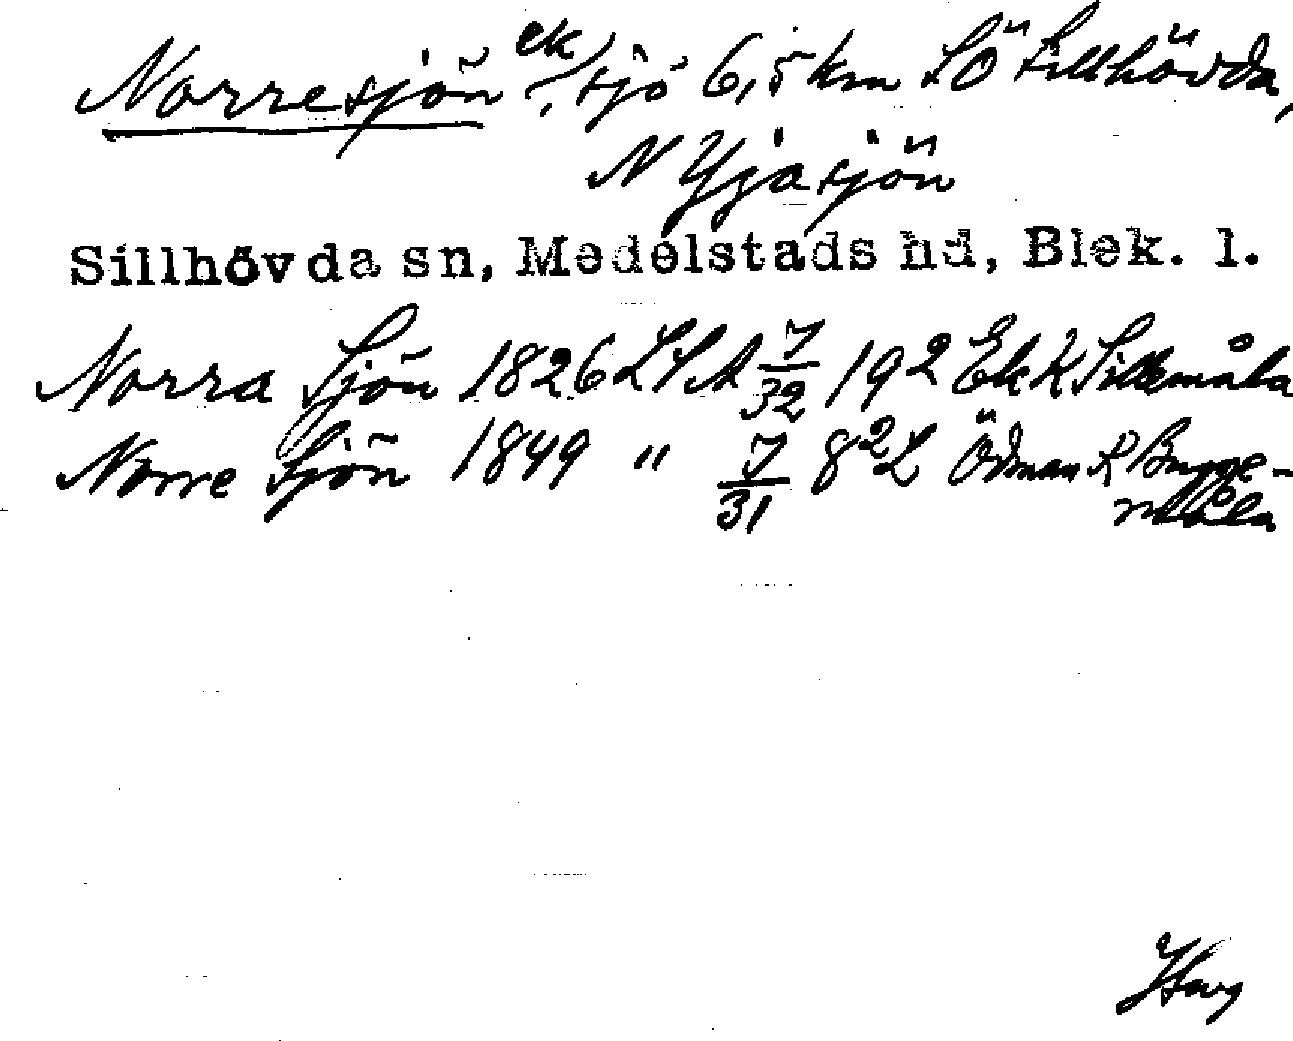 Norresjön ek, sjö 6,5 km SÖ Sillhövda,
N Yjasjön
Sillhövda sn, Medelstads hd, Blek. l.
Norra Sjön 1826 LSA 7/32 192 Ek K Sillemåla
Norre Sjön 1849 " 7/31 8² L Ödman R Bugge-
måla